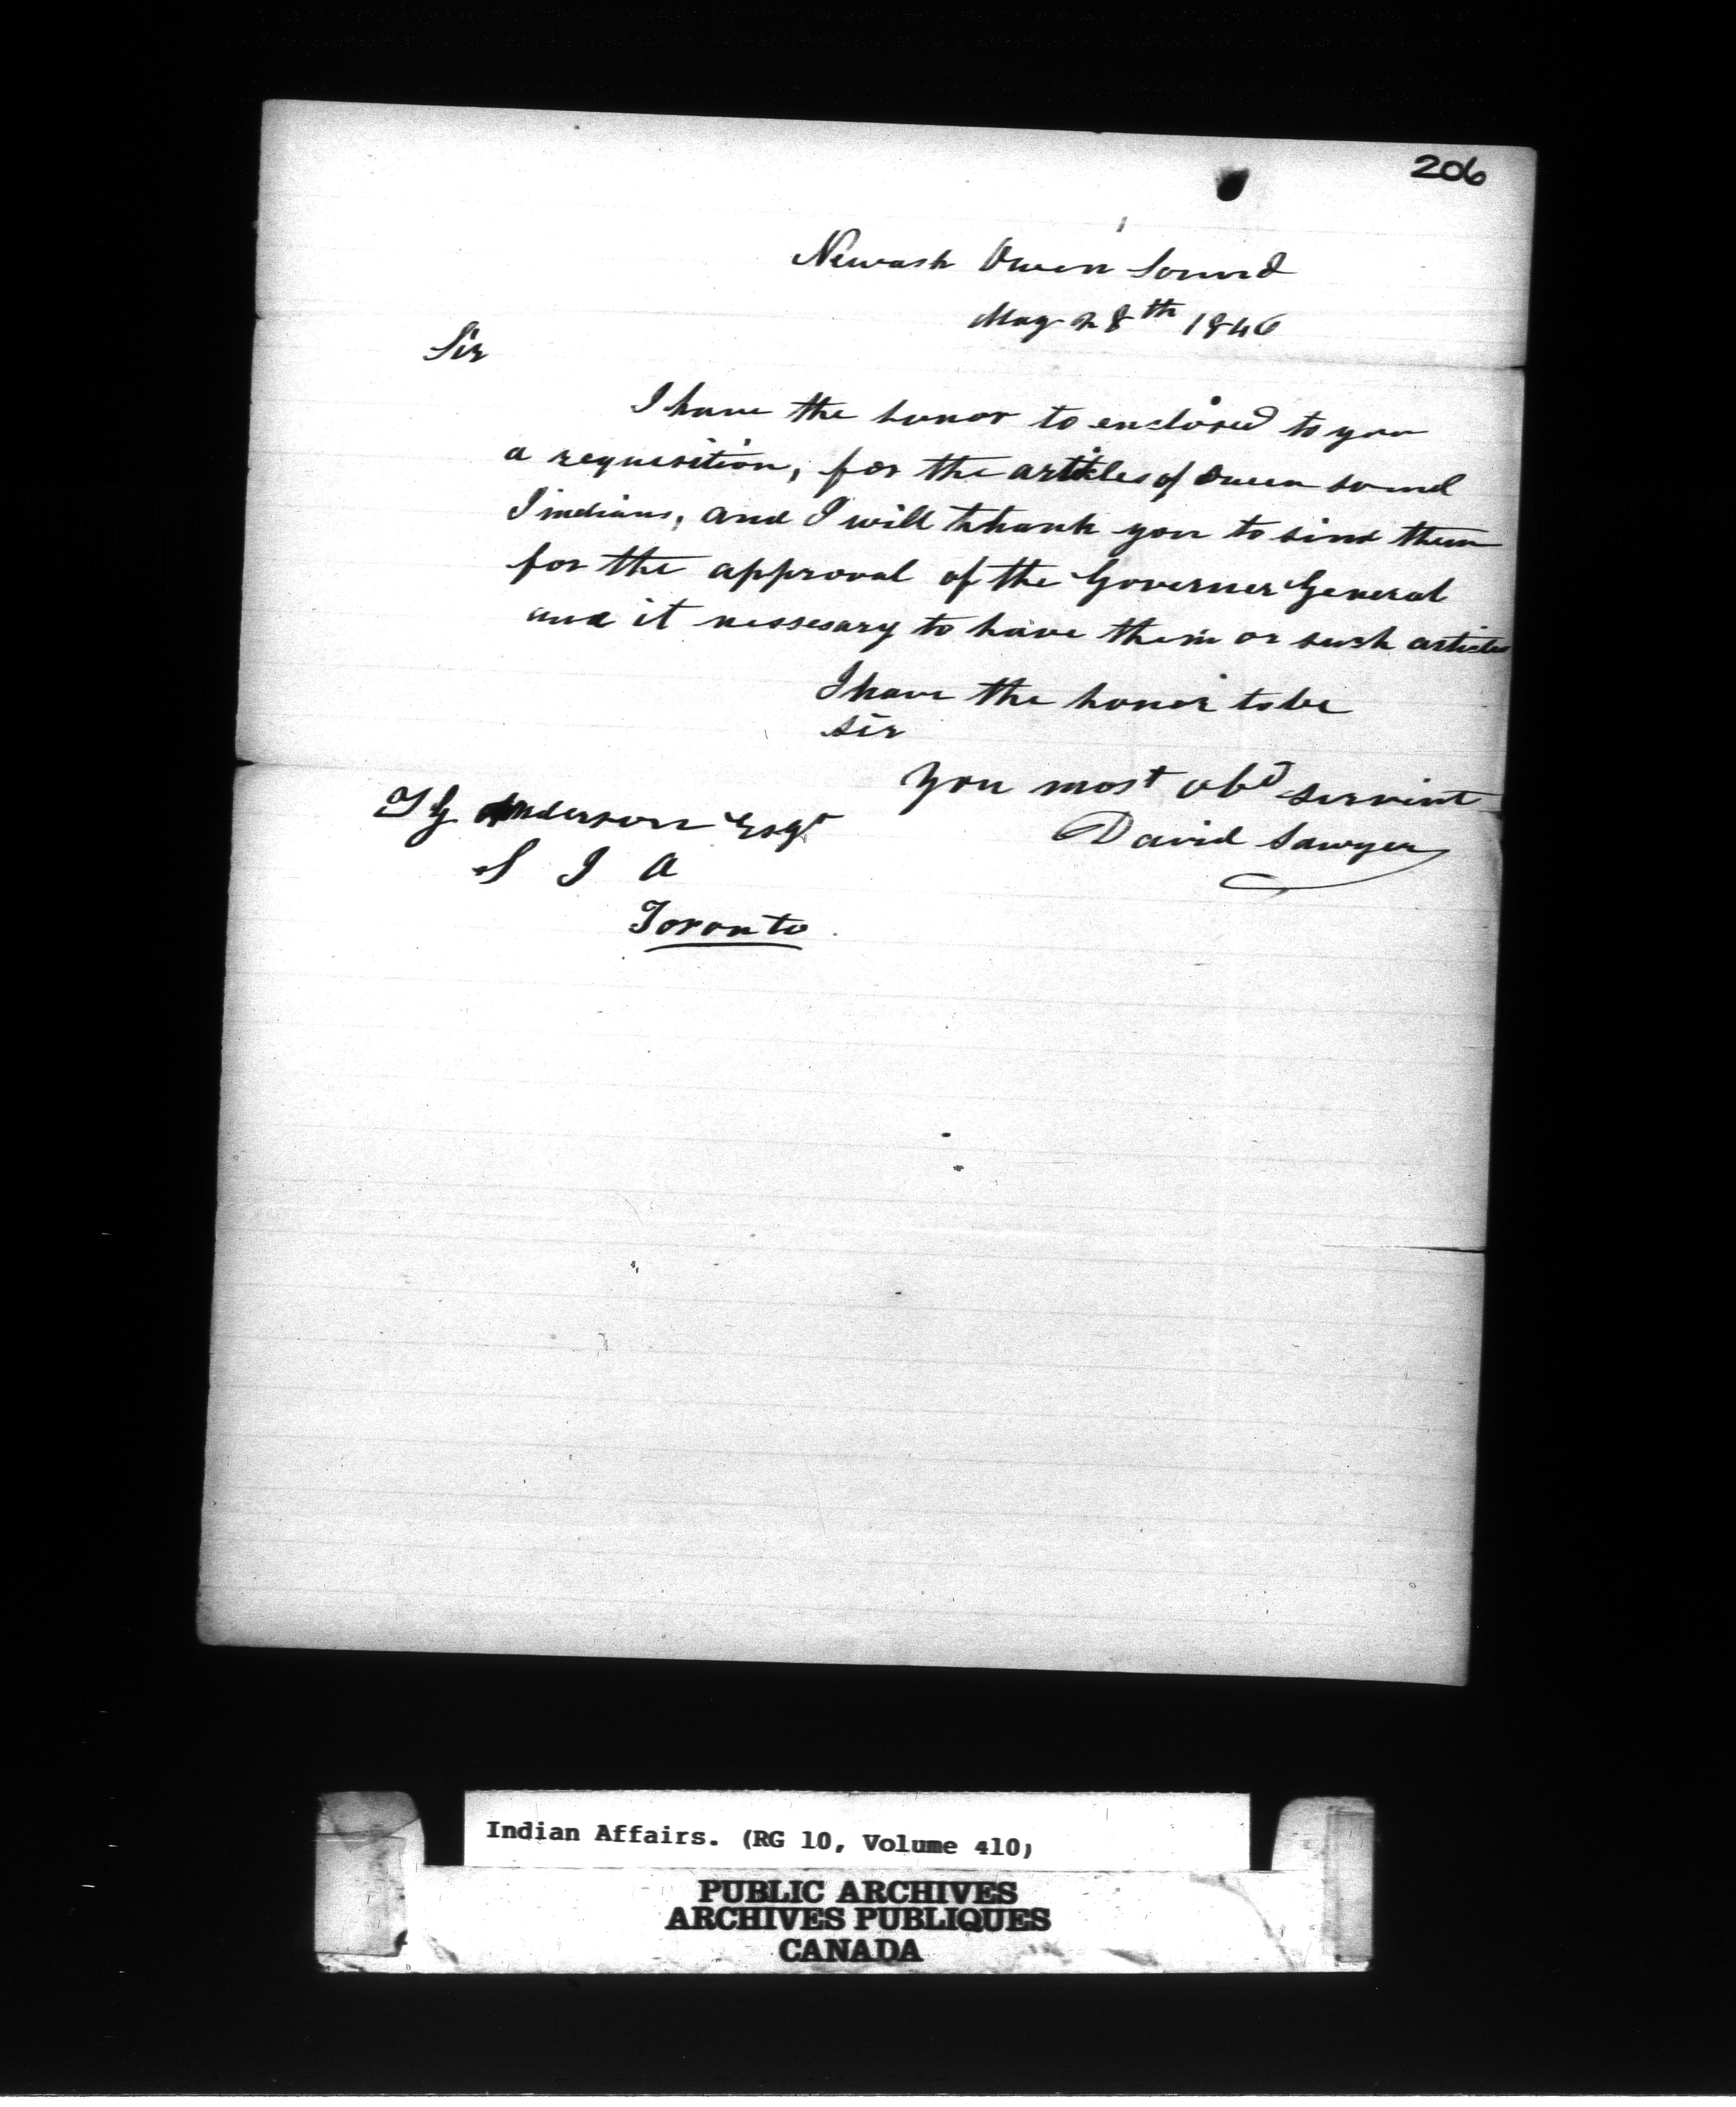 206
Newash Owen Sound
May 28th 1846
Sir
I have the honor to enclosed to you
a requisition, for the articles of Owen sound
Iindians, and I will thank you to sind them
for the approval of the Governer General
and it nessesary to have them or such articles
I have the honor to be
Sir
You most obd servint
David Sawyer
T G Anderson Esqr
S I A
Toronto
Indian Affairs. (RG 10, Volume 410)
PUBLIC ARCHIVES
ARCHIVES PUBLIQUES
CANADA